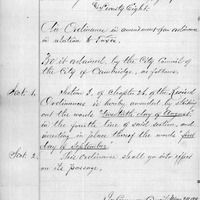 Twenty Eight.
An Ordinance in amendment of an ordinance
in relation to
Be it ordained, by the City Council of
the City of Cambridge, as follows.
Sect. 1. Section 3, of chapter 26, of the Revised
Ordinances is hereby amended by striking
out the words "twentieth day of August",
in the fourth line of said section, and
inserting in place thereof the words "first
day of September."
Sect. 2. This Ordinance shall go into effect
on its passage.
In